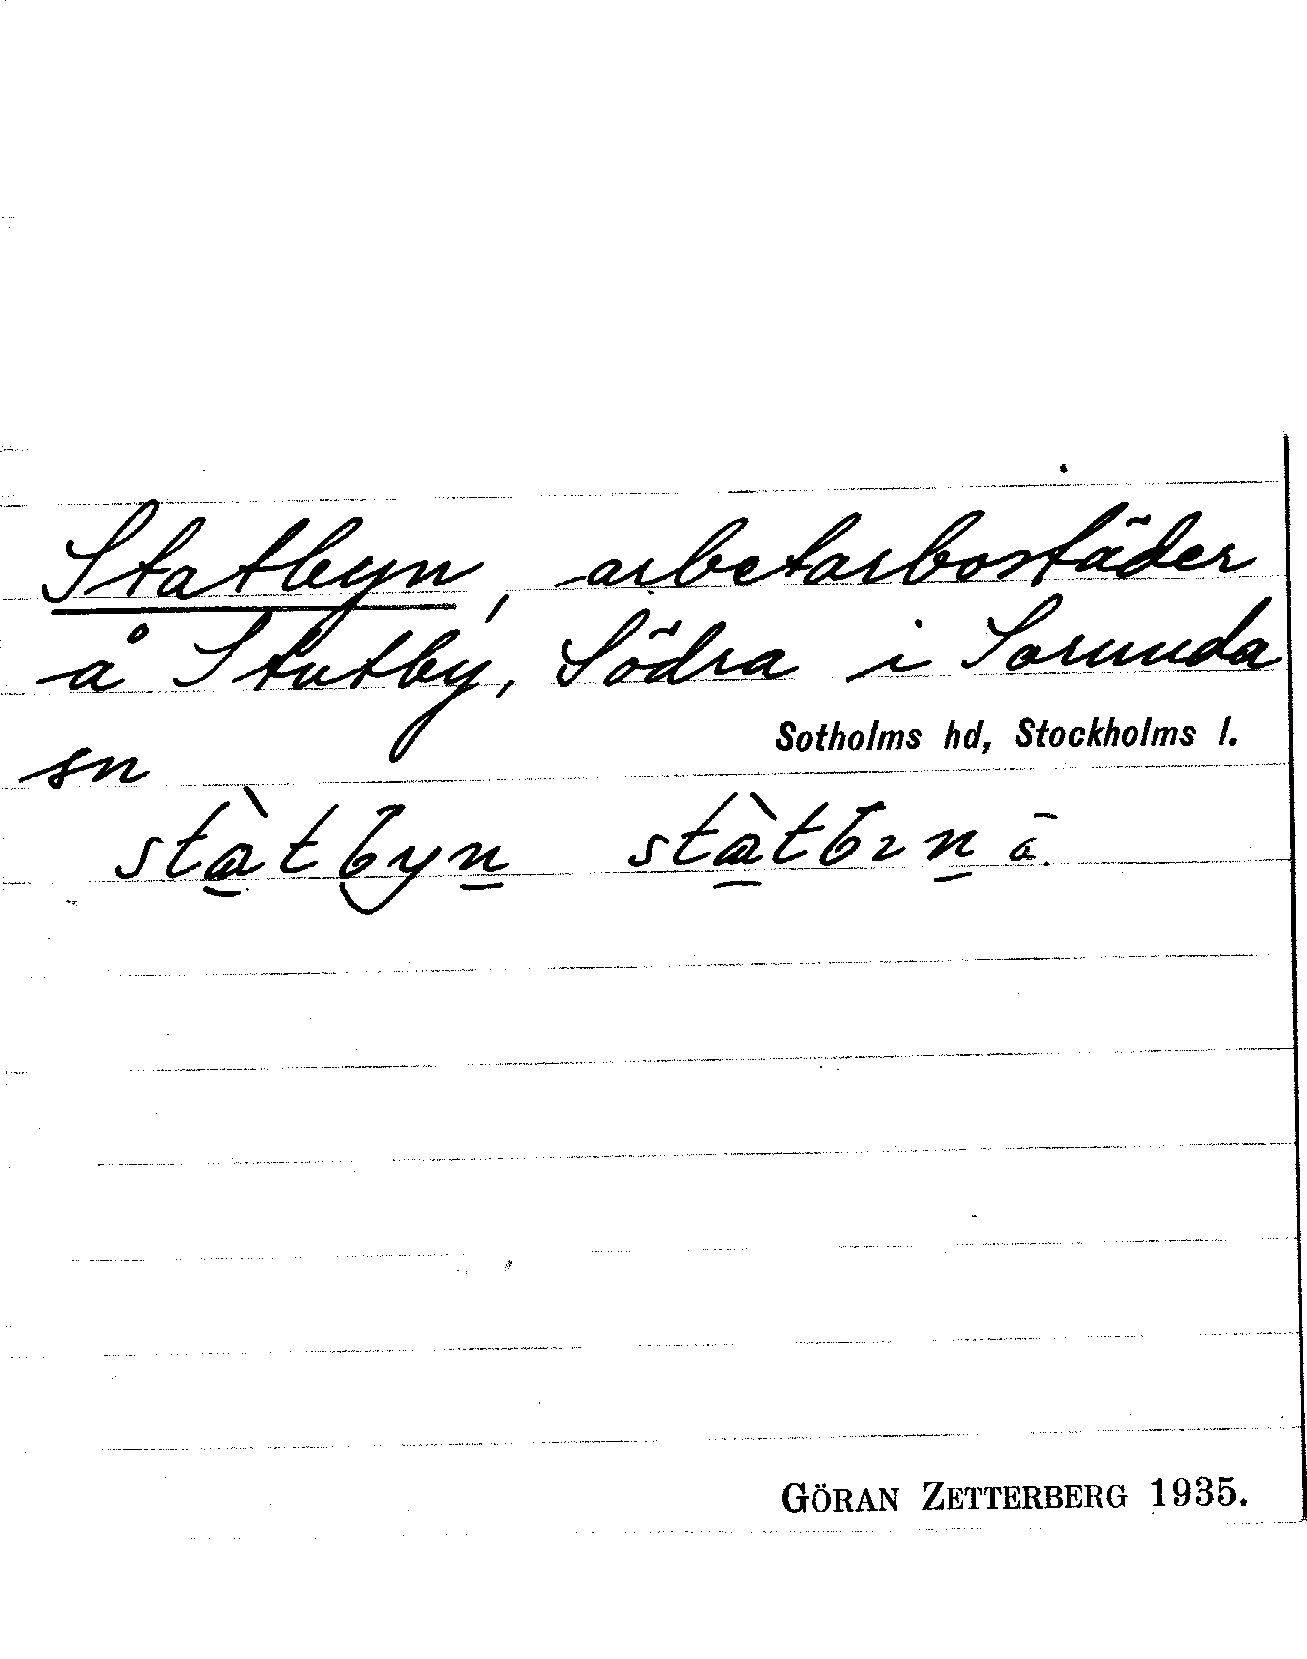 Statbyn, arbetarbostäder
å Stutby, Södra i Sorunda
sn
Sotholms hd, Stockholms l.
stàtbyn stàtbın ä.
GÖRAN ZETTERBERG 1935.